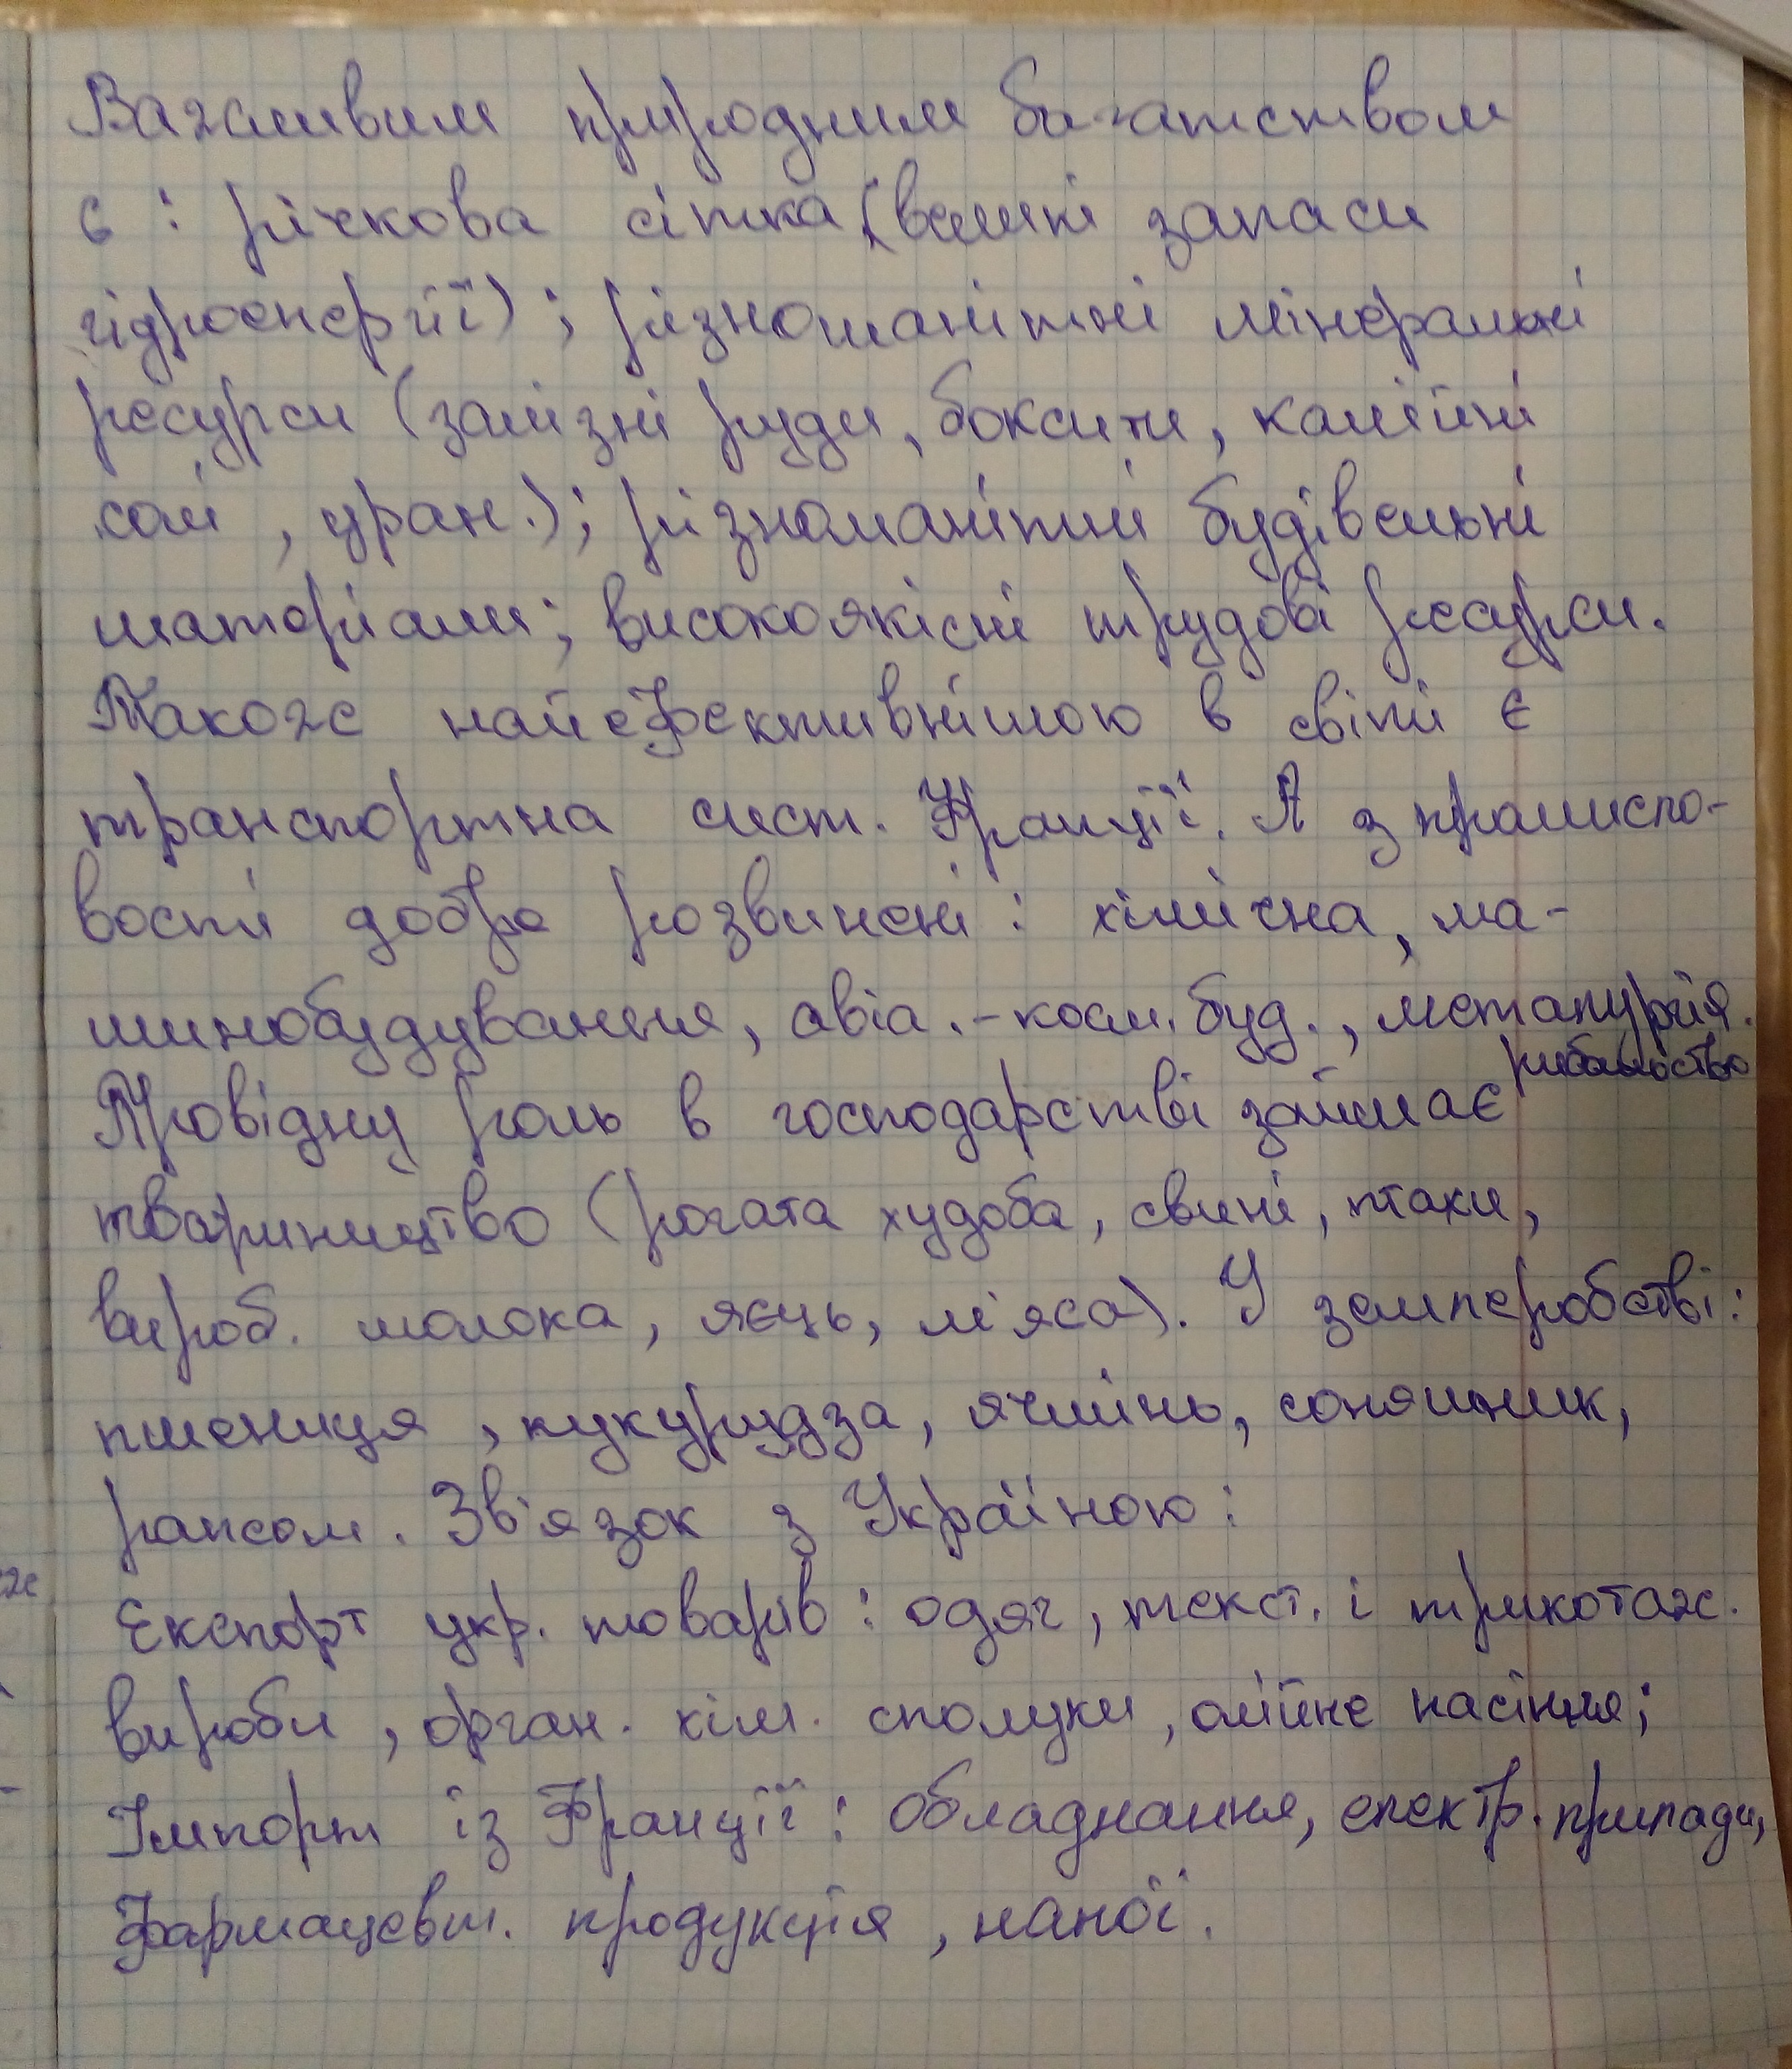 Важливим природним багатством
є : річкова сітка (великі запаси
гідроенергії) ; різноманітні мінеральні
ресурси (залізні руди, боксити, калійні
солі , уран.); різноманітні будівельні
матеріали; високоякісні трудові ресурси.
Також найефективнішою в світі є
транспортна сист. Франції. А з промисло-
вості добре розвинені : хімічна, ма-
шинобудування, авіа.-косм. буд., металургія.
рибальство
Провідну роль в господарстві займає
тваринництво (рогата худоба, свині, птахи,
вироб. молока, яєць, м'яса). У землеробстві:
пшениця , кукурудза, ячмінь, соняшник,
рапсом. Зв'язок з Україною :
Експорт укр. товарів : одяг, текст. і трикотаж.
вироби , орган. хім. сполуки , олійне насіння;
Імпорт із Франції : обладнання, електр. прилади,
фармацевт. продукція , напої.